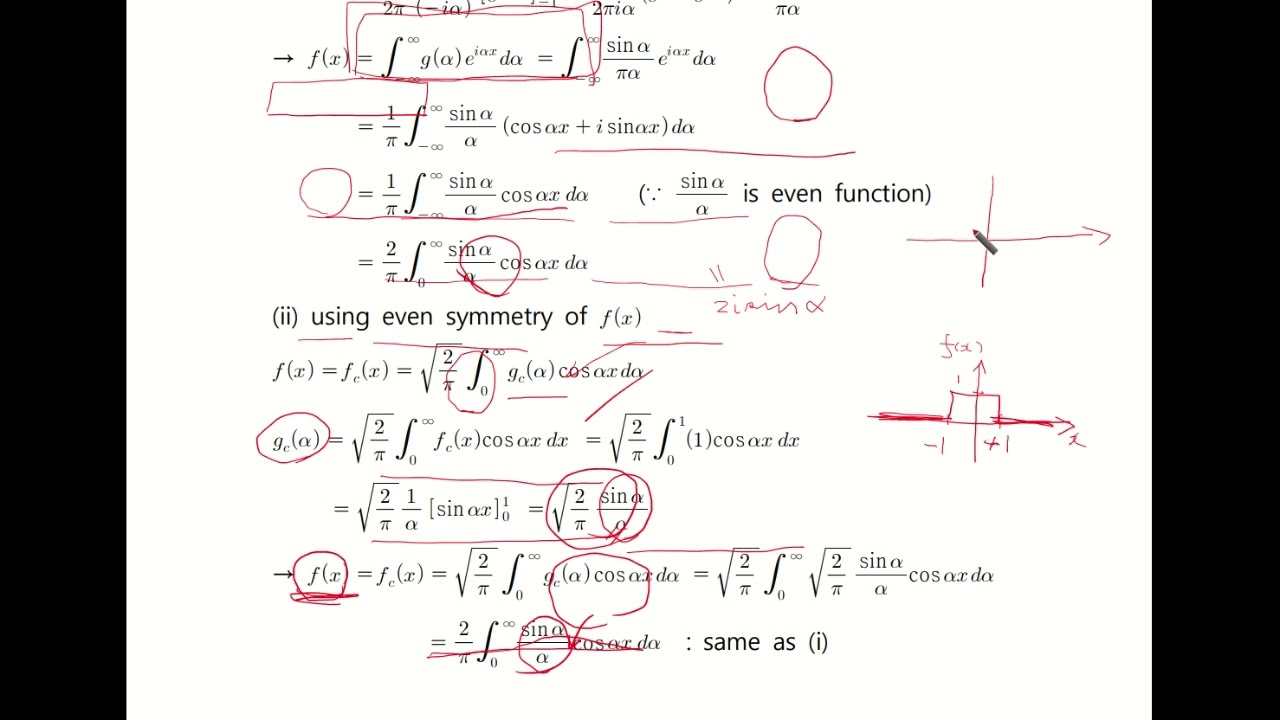 2π (−iα) 2πiα πα
→ f(x) = ∫_{−∞}^{∞} g(α) e^{iαx} dα = ∫_{−∞}^{∞} sin α / πα e^{iαx} dα
= 1/π ∫_{−∞}^{∞} sin α / α (cos αx + i sin αx) dα
= 1/π ∫_{−∞}^{∞} sin α / α cos αx dα (∵ sin α / α is even function)
= 2/π ∫_{0}^{∞} sin α / α cos αx dα
2i sin α
(ii) using even symmetry of f(x)
f(x)
f(x) = f_c(x) = √(2/π) ∫_{0}^{∞} g_c(α) cos αx dα
1
g_c(α) = √(2/π) ∫_{0}^{∞} f_c(x) cos αx dx = √(2/π) ∫_{0}^{1} (1) cos αx dx
−1 +1 x
= √(2/π) 1/α [sin αx]_{0}^{1} = √(2/π) sin α / α
→ f(x) = f_c(x) = √(2/π) ∫_{0}^{∞} g_c(α) cos αx dα = √(2/π) ∫_{0}^{∞} √(2/π) sin α / α cos αx dα
= 2/π ∫_{0}^{∞} sin α / α cos αx dα : same as (i)